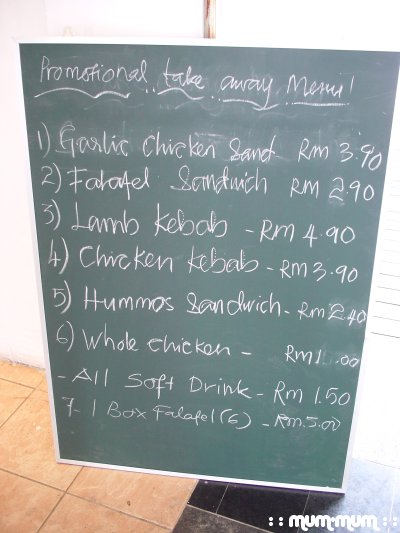 Promotional take away Menu!
1) Garlic Chicken Sand RM 3.90
2) Falafel Sandwich RM 2.90
3) Lamb Kebab - RM 4.90
4) Chicken Kebab - RM 3.90
5) Hummos Sandwich - RM 2.40
6) Whole Chicken -
- All Soft Drink - RM 1.50
7- 1 Box Falafel (6) - RM.5.00
:: mum-mum ::